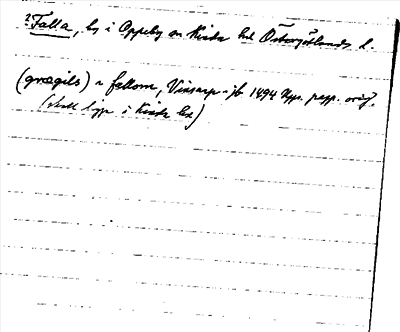 ?Falla, by i Oppeby sn Kinda hd Östergötlands l.
(grægils) a fallom, Vinsarp-jb 1494 Upps. papp. orig.
(skall ligga i Kinda hd)